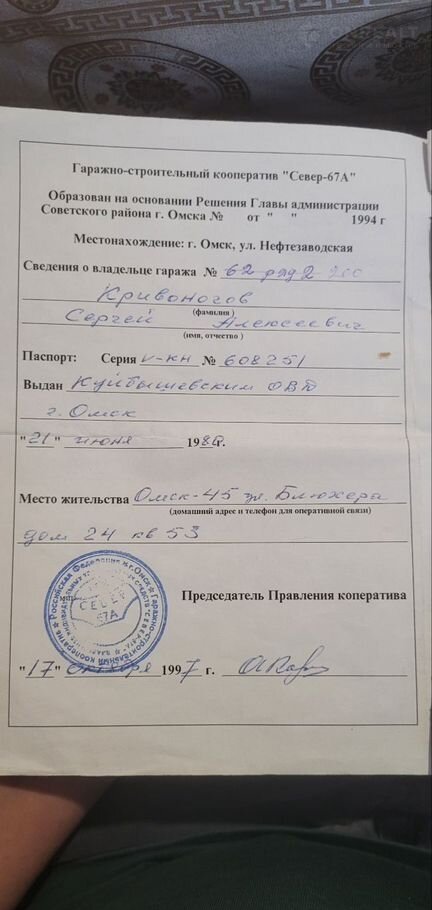 Гаражно-строительный кооператив "Север-67А"
Образован на основании Решения Главы администрации
Советского района г. Омска № от " " 1994 г
Местонахождение: г. Омск, ул. Нефтезаводская
Сведения о владельце гаража № 62 ряд 2
Кривоногов
(фамилия)
Сергей Алексеевич
(имя, отчество)
Паспорт: Серия V-КН № 608251
Выдан Куйбышевским ОВД
г. Омск
"21" июня 198 г.
Место жительства Омск-45 ул. Блюхера
(домашний адрес и телефон для оперативной связи)
дом 24 кв 53
Председатель Правления коператива
СЕВЕР
67А
"17" октября 1997 г.